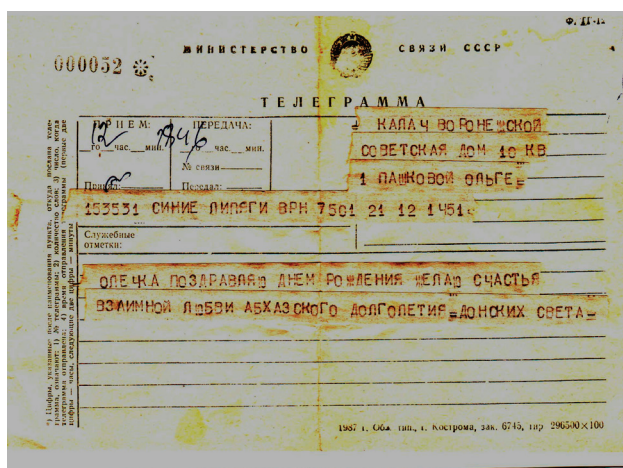 Ф. П-1а
МИНИСТЕРСТВО СВЯЗИ СССР
000052
ТЕЛЕГРАММА
ПРИЕМ: ПЕРЕДАЧА:
12 1846
го час. мин. го час. мин.
№ связи
Принял: Передал:
= КАЛАЧ ВОРОНЕЖСКОЙ
СОВЕТСКАЯ ДОМ 10 КВ
1 ПАШКОВОЙ ОЛЬГЕ=
153531 СИНИЕ ЛИПЯГИ ВРН 7501 21 12 1451=
Служебные
отметки:
ОЛЕЧКА ПОЗДРАВЛЯЮ ДНЕМ РОЖДЕНИЯ ЖЕЛАЮ СЧАСТЬЯ
ВЗАИМНОЙ ЛЮБВИ АБХАЗСКОГО ДОЛГОЛЕТИЯ=ДОНСКИХ СВЕТА=
*) Цифры, указанные после наименования пункта, откуда послана теле-
грамма, означают: 1) № телеграммы; 2) количество слов; 3) число, когда
телеграмма отправлена; 4) время отправления телеграммы (первые две
цифры — часы, следующие две цифры — минуты
1987 г. Обл. тип., г. Кострома, зак. 6745, тир 296500×100